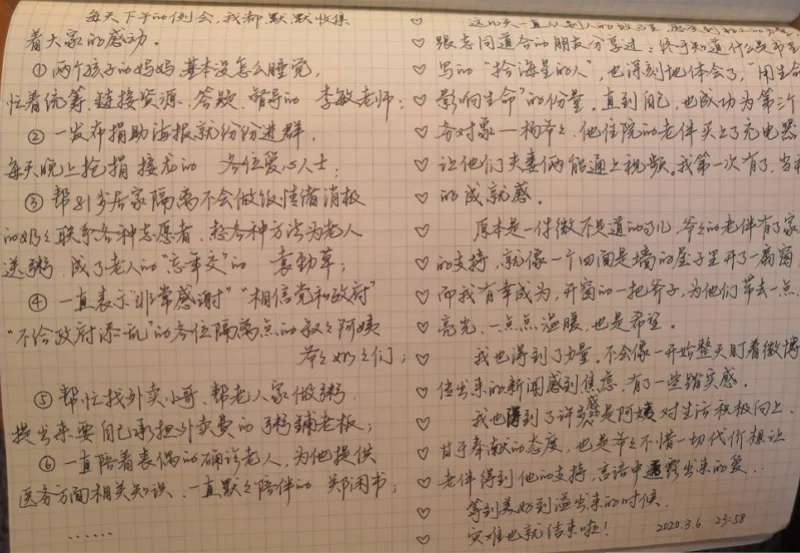 每天下午的例会，我都默默收集
着大家的感动。
①两个孩子的妈妈，基本没怎么睡觉，
忙着统筹、链接资源、答疑、督导的 李敏老师；
②一发布捐助海报就纷纷进群，
每天晚上抢捐 接龙的 各位爱心人士；
③帮81岁居家隔离不会做饭情绪消极
的奶奶联系各种志愿者，想各种方法为老人
送粥，成了老人的“忘年交”的 袁劲草；
④一直表示“非常感谢”“相信党和政府”
“不给政府添乱”的各位隔离点的叔叔阿姨
爷爷奶奶们；
⑤帮忙找外卖小哥、帮老人家做粥
提出来要自己承担外卖费的 粥铺老板；
⑥一直陪着丧偶的确诊老人，为他提供
医务方面相关知识、一直默默陪伴的 郑闲书；
……
这几天一直从别人的故事里，感受到
跟志同道合的朋友分享过：终于知道什么是
写的“拾海星的人”，也深刻地体会了“用生命
影响生命”的份量。直到自己，也成功为第
务对象—杨爷爷，他住院的老伴买上了充电器
让他们夫妻俩能通上视频。我第一次有了，当
的成就感。
原本是一件微不足道的事儿，爷爷的老伴有了家
的支持，就像一个四面是墙的屋子里开了一扇窗
而我有幸成为，开窗的一把斧子，为他们带去一点
亮光、一点点温暖，也是希望。
我也得到了力量。不会像一开始整天盯着微博
传出来的新闻感到焦虑，有了一些踏实感。
我也得到了许多感是阿姨对生活积极向上、
甘于奉献的态度，也是爷爷不惜一切代价想让
老伴得到他的支持，言语中透露出来的爱..
等到美好到溢出来的时候，
灾难也就结束啦！ 2020.3.6 23:58